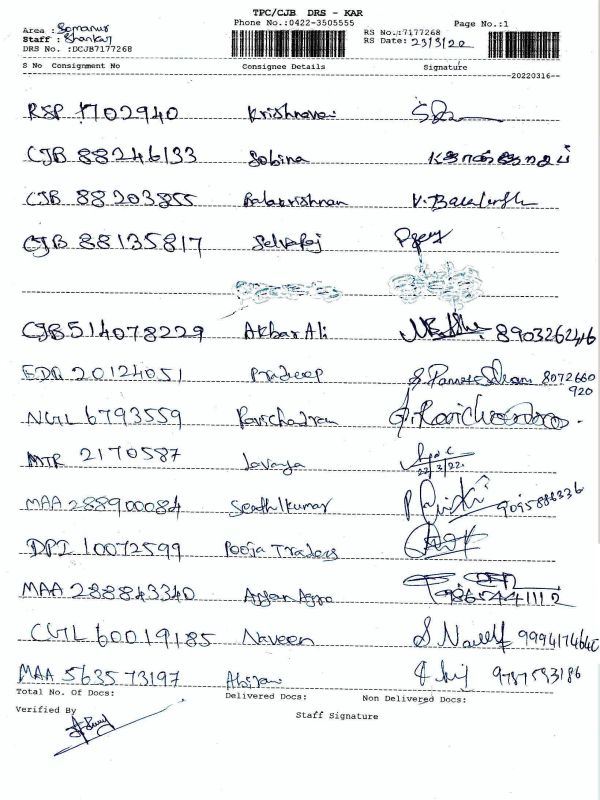 TPC/CJB DRS - KAR
Phone No.:0422-3505555 Page No.:1
Area : Somanur
Staff : Shankar
DRS No. :DCJB7177268
RS No.:7177268
RS Date: 23/3/22
S No Consignment No Consignee Details Signature
20220316
RSP 1702940 Krishnaveni
CJB 88246133 Sobina
CJB 88203855 Balakrishnan V. Balakrish
CJB 88135817 Selvaraj
CJB514078229 Akbar Ali 8903262446
EDR 20124051 Pradeep 8072660
920
NGL 6793559 Ravichadran
MTR 2170587 Lavanya
22/3/22
MAA 288900084 Senthilkumar 9095886336
DPI 10072599 Pooja Traders
MAA 288843340 9865441112
CGL 60019185 Naveen S. Naveen 9994174640
MAA 563573197 9787593186
Total No. Of Docs: Delivered Docs: Non Delivered Docs:
Verified By
Staff Signature